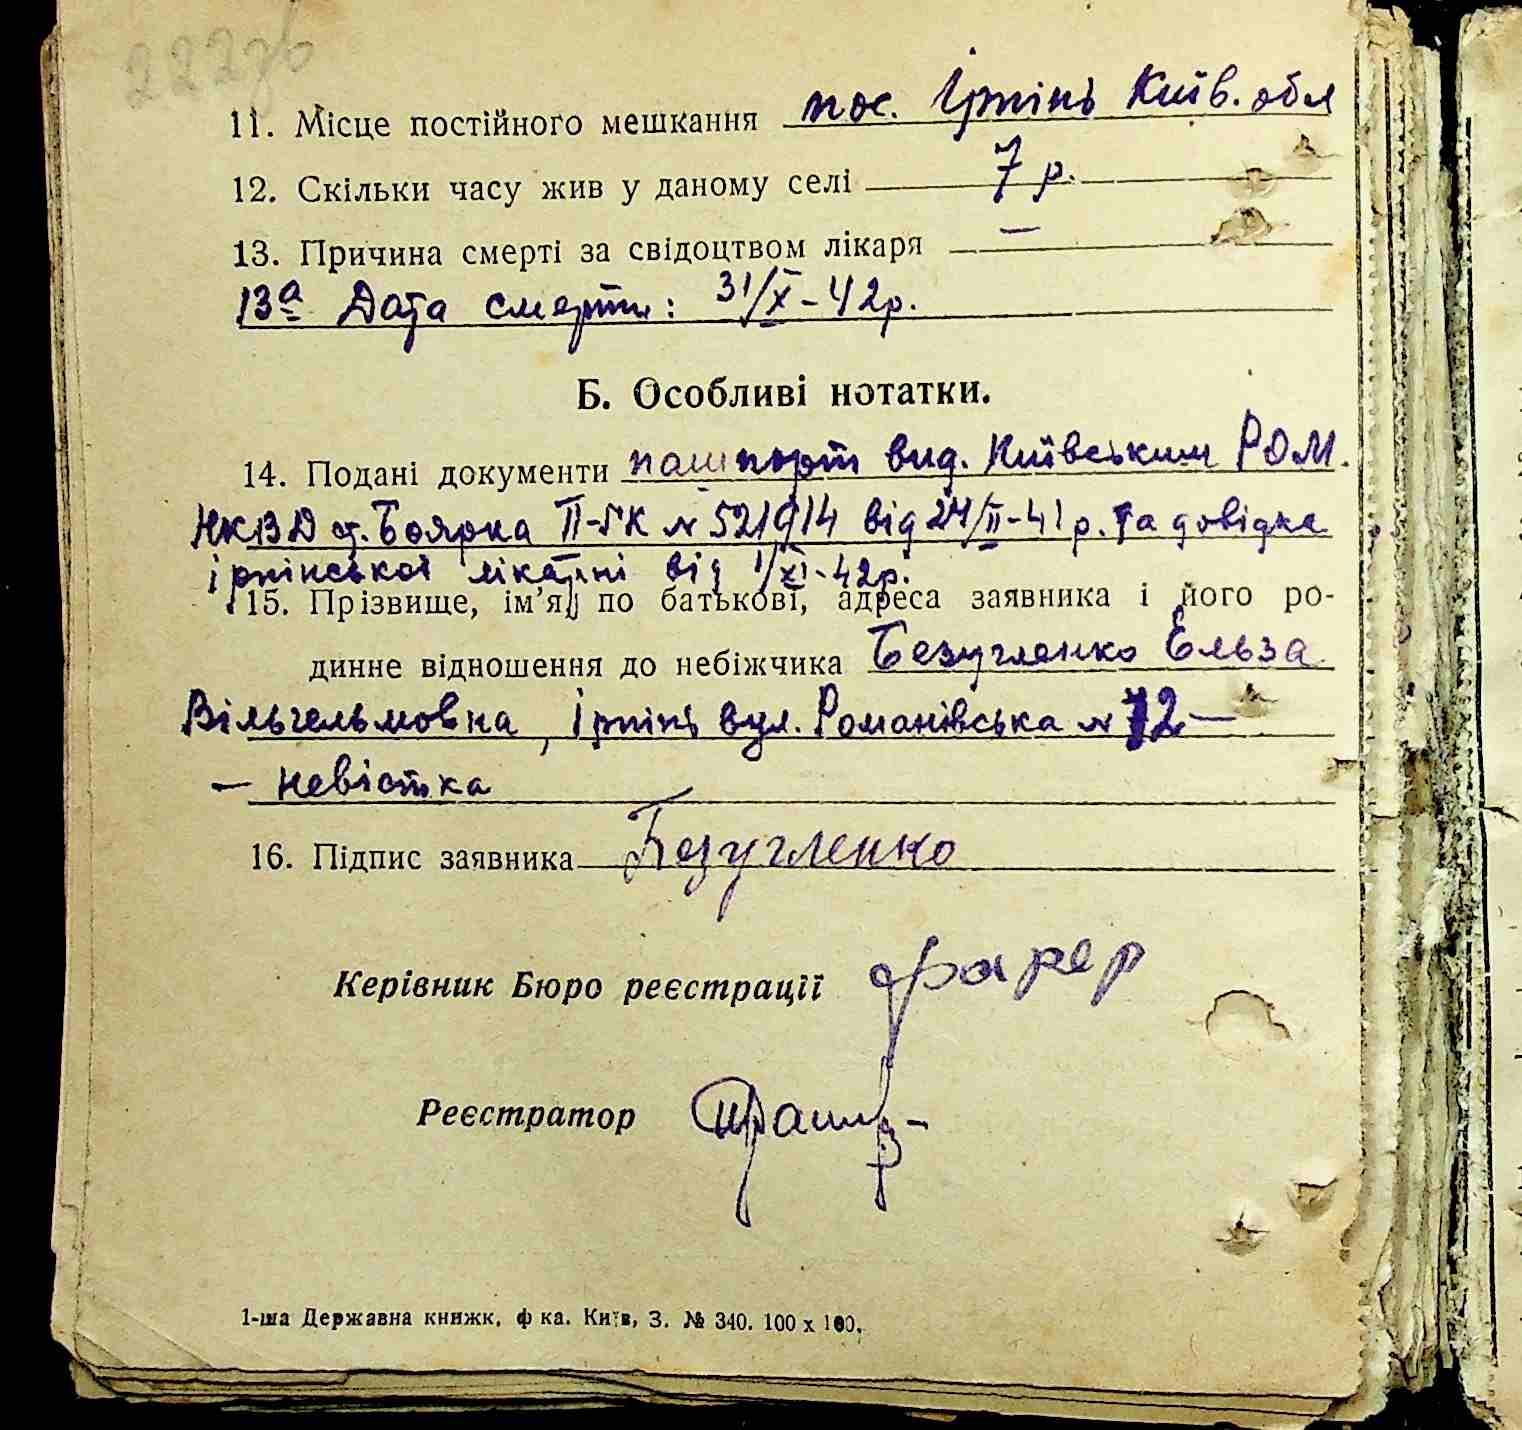 222зв
11. Місце постійного мешкання пос. Ірпінь Київ. обл
12. Скільки часу жив у даному селі 7 р.
13. Причина смерті за свідоцтвом лікаря —
13а Дата смерти: 31/X-42р.
Б. Особливі нотатки.
14. Подані документи пашпорт вид. Київським РОМ.
НКВД ст. Боярка II-ГК № 521914 від 24/II-41 р. та довідка
ірпінської лікарні від 1/XI-42р.
15. Прізвище, ім'я, по батькові, адреса заявника і його ро-
динне відношення до небіжчика Безугленко Ельза
Вільгельмовна, Ірпінь вул. Романівська № 72 —
— невістка
16. Підпис заявника Безугленко
Керівник Бюро реєстрації
Реєстратор
1-ша Державна книжк. ф ка. Київ, З. № 340. 100 x 100.